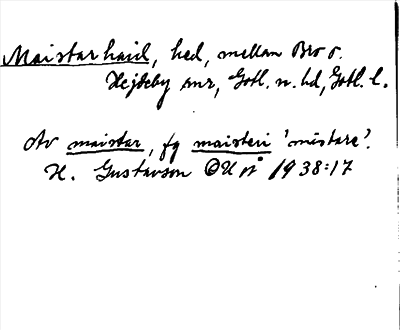 Maistarhaid, hed, mellan Bro o.
Hejdeby snr, Gotl. n. hd, Gotl. l.
Av maistar, fg maisteri 'mästare'.
H. Gustavson OUÅ 1938:17